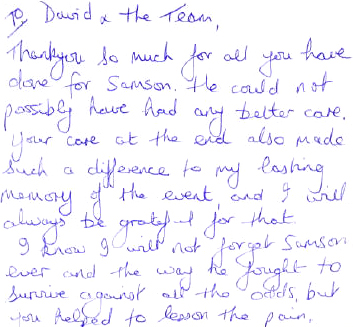 To David & the Team,
Thankyou so much for all you have
done for Samson. He could not
possibly have had any better care.
Your care at the end also made
such a difference to my lasting
memory of the event, and I will
always be grateful for that
I know I will not forget Samson
ever and the way he fought to
survive against all the odds, but
you helped to lesson the pain.